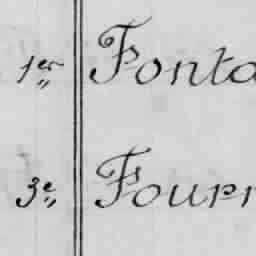 1er Fonta
3e Fourr